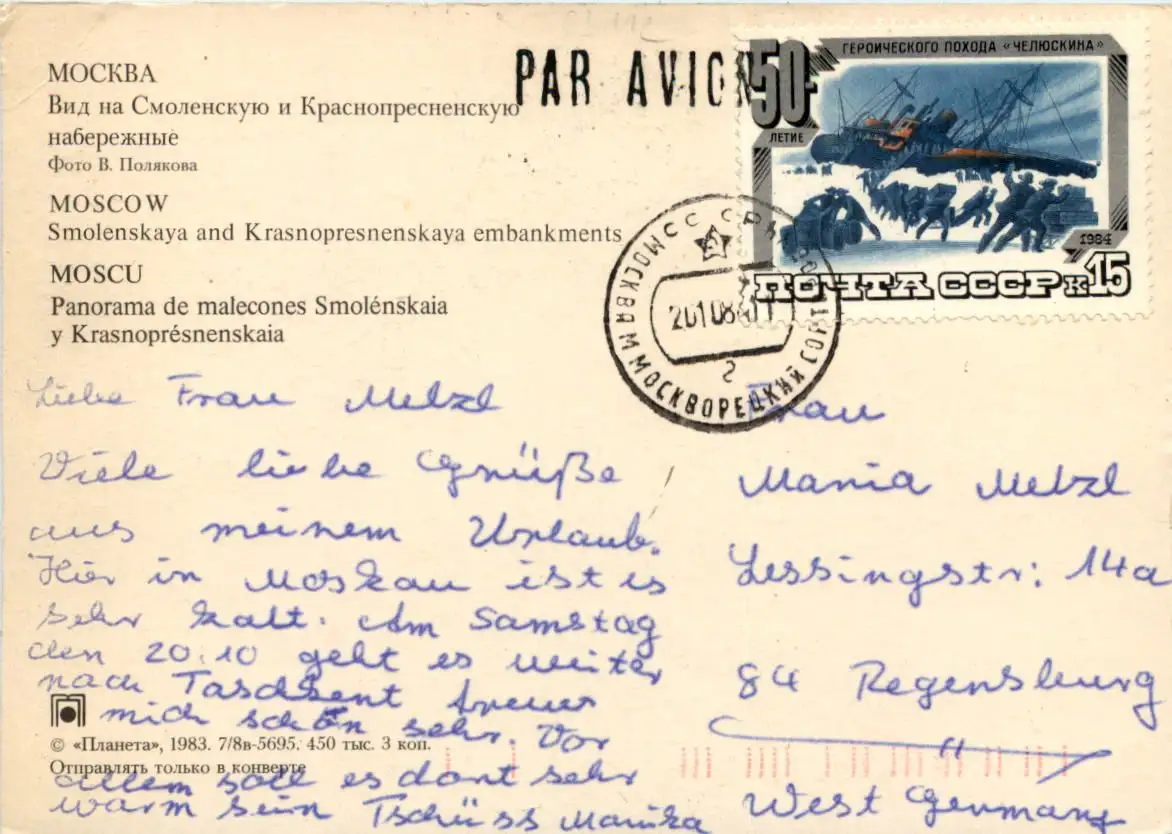 МОСКВА
Вид на Смоленскую и Краснопресненскую
набережные
Фото В. Полякова
MOSCOW
Smolenskaya and Krasnopresnenskaya embankments
MOSCU
Panorama de malecones Smolénskaia
y Krasnoprésnenskaia
PAR AVION
50-
ЛЕТИЕ
ГЕРОИЧЕСКОГО ПОХОДА «ЧЕЛЮСКИНА»
1984
ПОЧТА СССР к15
МОСКВА
МОСКВОРЕЦКИЙ
2
Liebe Frau Melzl
Viele liebe Grüße
aus meinem Urlaub.
Hier in Moskau ist es
sehr kalt. Am Samstag
den 20.10 geht es weiter
nach Taschkent freue
mich schon sehr. Vor
allem soll es dort sehr
warm sein Tschüss Monika
Frau
Maria Melzl
Lessingstr: 14a
84 Regensburg
West Germany
© «Планета», 1983. 7/8в-5695. 450 тыс. 3 коп.
Отправлять только в конверте